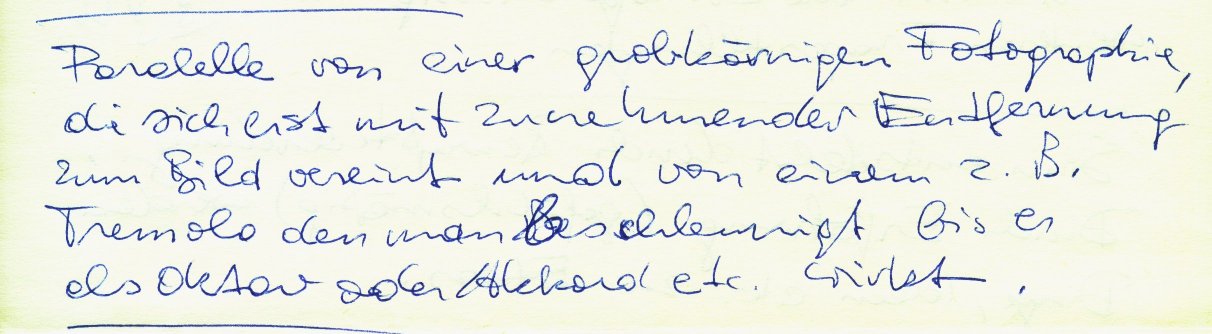 Paralelle von einer grobkörnigen Fotographie,
die sich erst mit zunehmender Entfernung
zum Bild vereint und von einem z. B.
Tremolo den man beschleunigt bis er
als Oktav oder Akkord etc. wirkt.